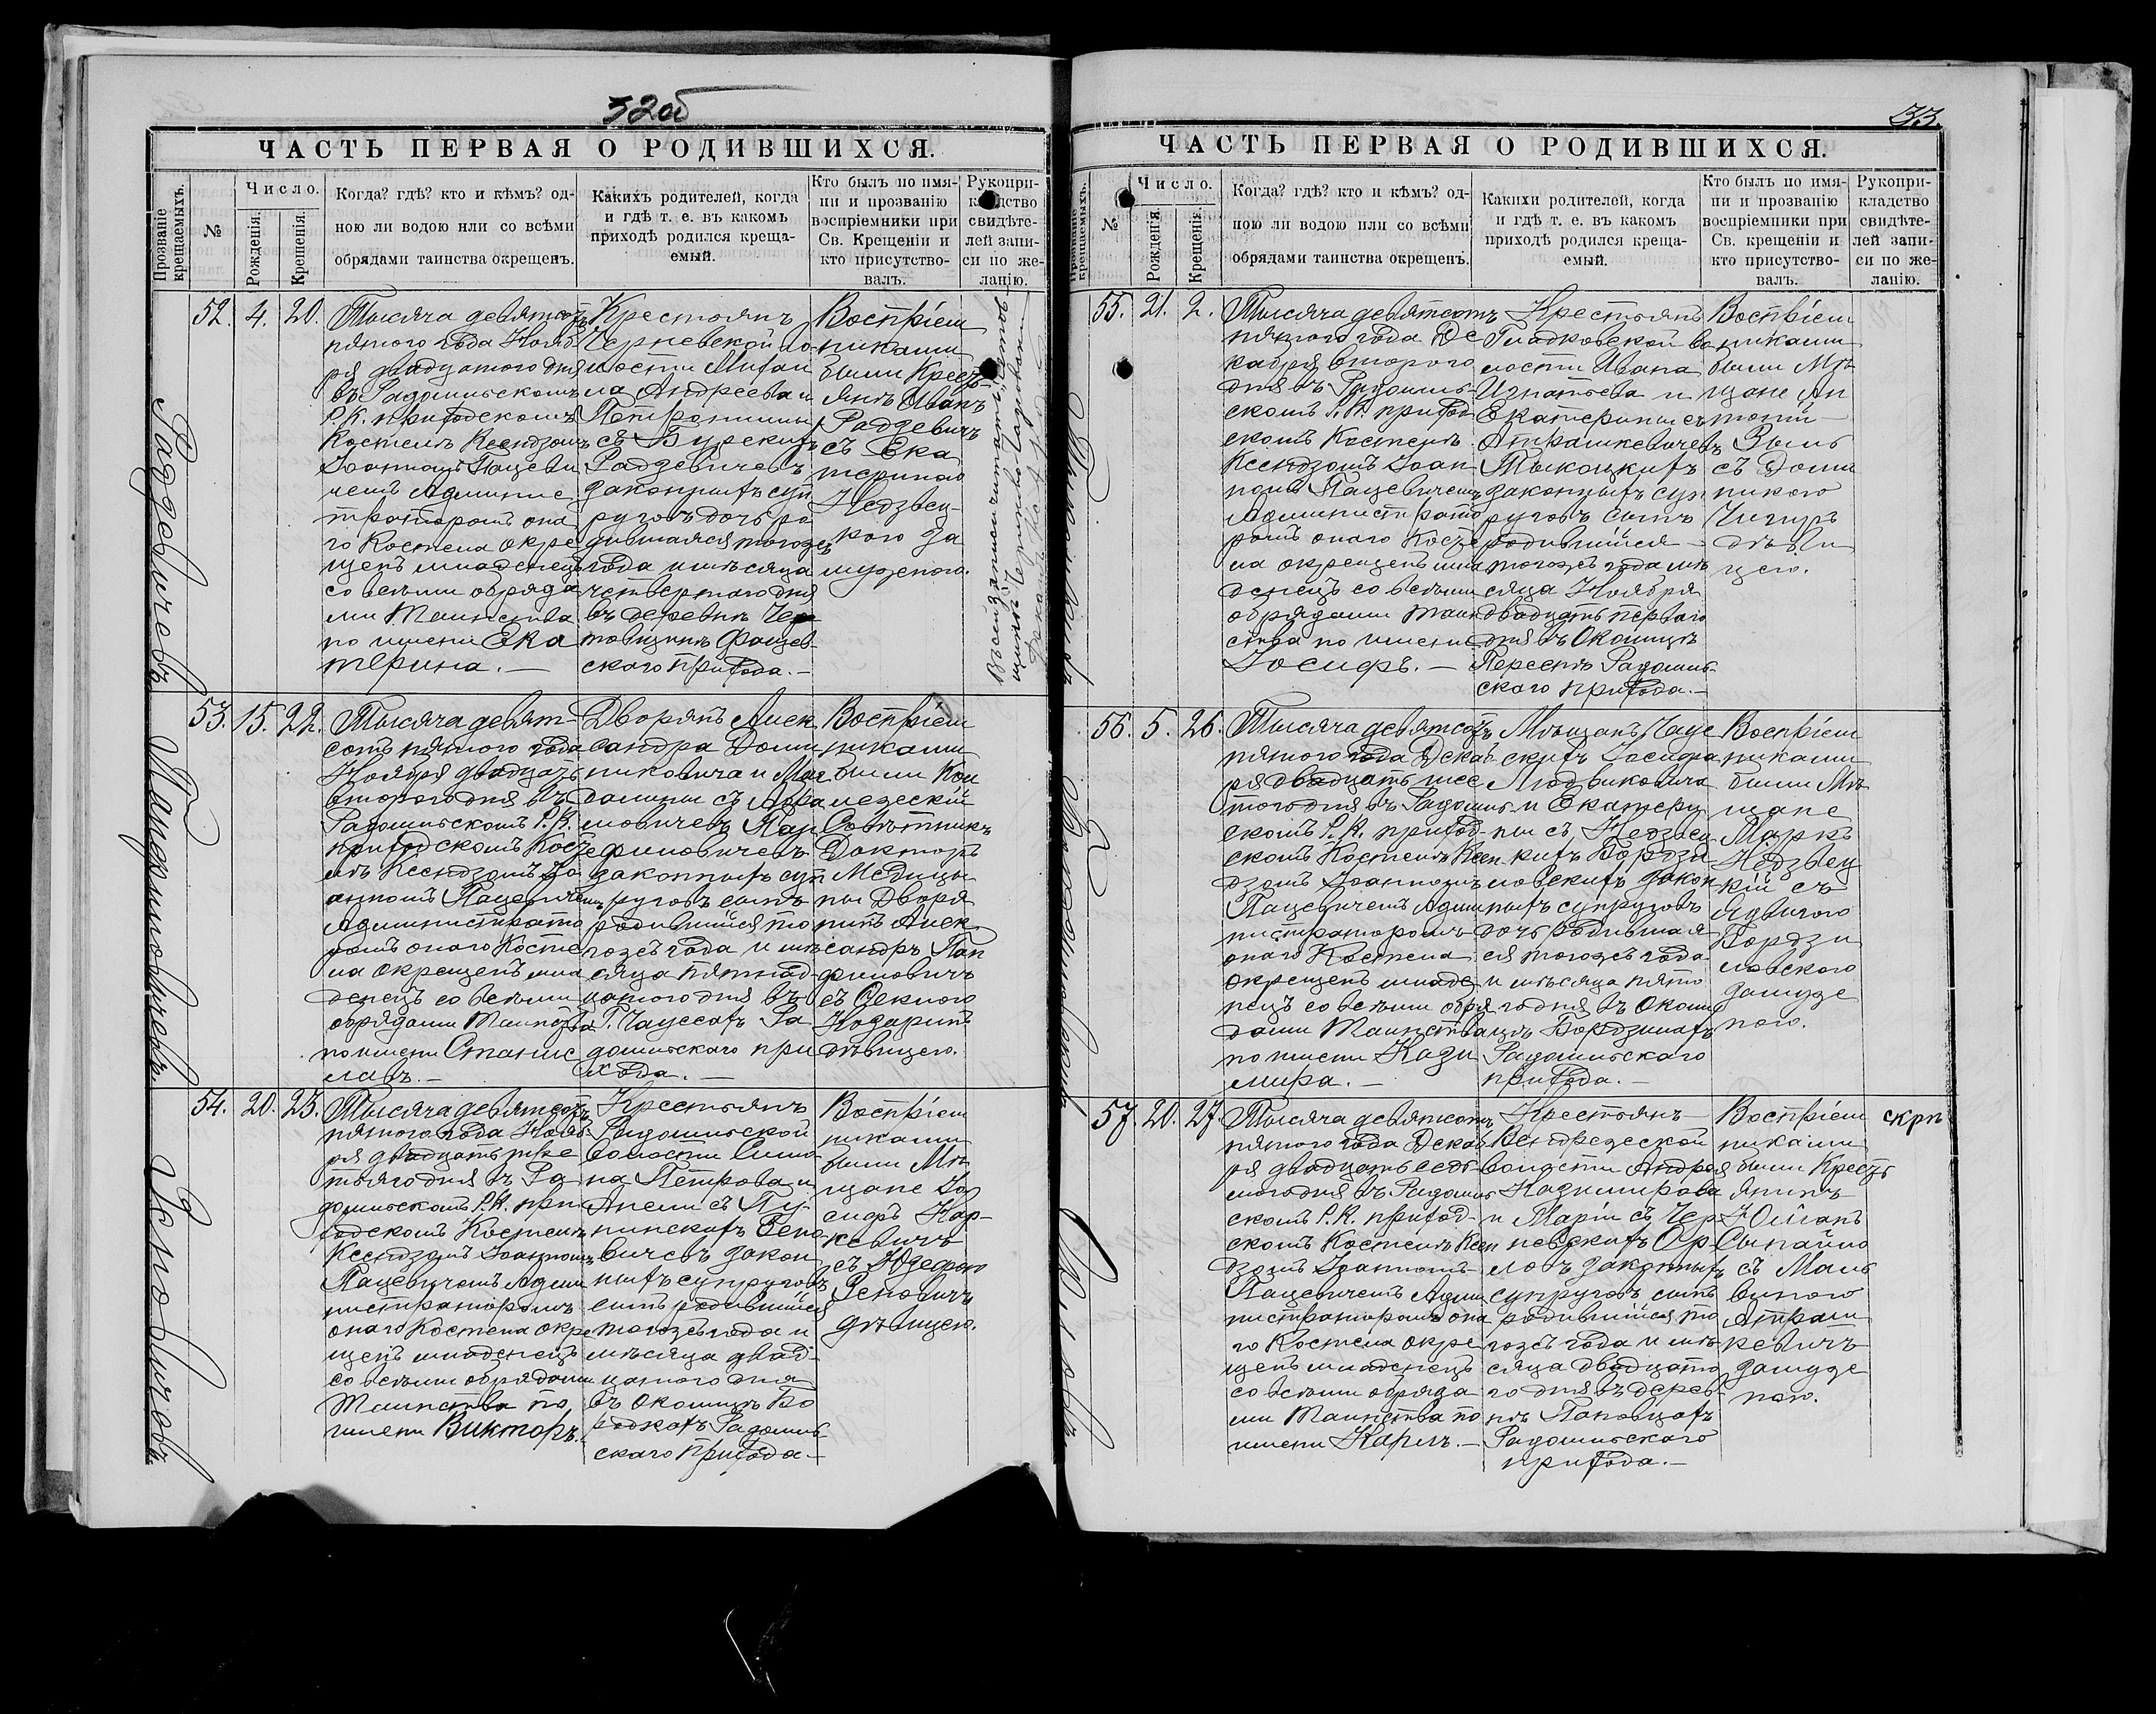 32об
ЧАСТЬ ПЕРВАЯ О РОДИВШИХСЯ.
Прозваніе крещаемыхъ.
№
Число.
Рожденія.
Крещенія.
Когда? гдѣ? кто и кѣмъ? од-
ною ли водою или со всѣми
обрядами таинства окрещенъ.
Какихъ родителей, когда
и гдѣ т. е. въ какомъ
приходѣ родился креща-
емый.
Кто былъ по имя-
ни и прозванію
воспріемники при
Св. Крещеніи и
кто присутство-
валъ.
Рукопри-
кладство
свидѣте-
лей запи-
си по же-
ланію.
Радзевичевъ
52. 4. 20.
Тысяча девятсотъ
пятого года Нояб
ря двадцатого дня
въ Радомльскомъ
Р. К. приходскомъ
Костелѣ Ксендзомъ
Іоанномъ Пацеви
чемъ Админис
траторомъ она
го Костела окре
щенъ младенецъ
со всѣми обряда
ми Таинства
по имени Ека
терина. —
Крестьянъ
Черневской во
лости Михаи
ла Андреева и
Петронили
съ Бурскихъ
Радзевичевъ
законныхъ суп
руговъ дочь ро
дившаяся тогожъ
года и мѣсяца
четвертого дня
въ деревнѣ Чер
товщинѣ Фащев
ского прихода. —
Воспріем
никами
были Кресть
янъ Иванъ
Радзевичъ
съ Ека
териною
Недзвец-
кою за
мужною.
Панфиловичевъ.
53. 15. 22.
Тысяча девят-
сотъ пятого года
Ноября двадцать
второго дня въ
Радомльскомъ Р. К.
приходскомъ Косте
лѣ Ксендзомъ Іо
анномъ Пацевичемъ
Администрато
ромъ оного Косте
ла окрещенъ мла
денецъ со всѣми
обрядами Таинства
по имени Станис
лавъ. —
Дворянъ Алек
сандра Доми
никовича и Маг
далины съ Абра
мовичевъ Пан
филовичевъ
законныхъ суп
руговъ сынъ
родившійся то
гожъ года и мѣ
сяца пятнад-
цатого дня въ
Г. Чаусахъ Ра
домльского при
хода. —
Воспріем
никами
были Кол
лежескій
Совѣтникъ
Докторъ
Медици
ны Дворя
нинъ Алек
сандръ Пан
филовичъ
съ Феклою
Нозаринъ
дѣвицею.
Зеновичевъ
54. 20. 23.
Тысяча девятсотъ
пятого года Нояб-
ря двадцать тре
тьяго дня въ Ра
домльскомъ Р. К. при
ходскомъ Костелѣ
Ксендзомъ Іоанномъ
Пацевичемъ Адми
нистраторомъ
оного Костела окре
щенъ младенецъ
со всѣми обрядами
Таинства по
имени Викторъ.
Крестьянъ
Радомльской
волости Симо
на Петрова и
Анели съ Пу-
нинскахъ Зено
вичевъ закон
ныхъ супруговъ
сынъ родившійся
тогожъ года и
мѣсяца двад-
цатого дня
въ Околицѣ Бо
родкахъ Радомль-
ского прихода —
Воспріем
никами
были Мѣ
щане Іо
сифъ Кар-
кевичъ
съ Юзефою
Зеновичъ
дѣвицею.
33.
ЧАСТЬ ПЕРВАЯ О РОДИВШИХСЯ.
№
Число.
Рожденія.
Крещенія.
Когда? гдѣ? кто и кѣмъ? од-
ною ли водою или со всѣми
обрядами таинства окрещенъ.
Какихи родителей, когда
и гдѣ т. е. въ какомъ
приходѣ родился креща-
емый.
Кто былъ по имя-
ни и прозванію
воспріемники при
Св. крещеніи и
кто присутство-
валъ.
Рукопри-
кладство
свидѣте-
лей запи-
си по же-
ланію.
55. 21. 2.
Тысяча девятсотъ
пятого года Де
кабря второго
дня въ Радомль-
скомъ Р. К. приход
скомъ Костелѣ
Ксендзомъ Іоан
номъ Пацевичемъ
Администрато
ромъ оного Косте
ла окрещенъ мла
денецъ со всѣми
обрядами Таин
ства по имени
Іосифъ. —
Крестьянъ
Гладковской во
лости Ивана
Игнатьева и
Екатерины съ
Атрашкевичевъ
Тыкоцкихъ
законныхъ суп
руговъ сынъ
родившійся
тогожъ года мѣ
сяца Ноября
двадцать первого
дня въ Околицѣ
Пересѣтъ Радомль-
ского прихода. —
Воспріем
никами
были Мѣ
щане Ан
тоній
Зыль
съ Доми
никою
Чигиръ
дѣви
цею.
56. 5. 26.
Тысяча девятсотъ
пятого года Декаб
ря двадцать шес
того дня въ Радомль
скомъ Р. К. приход-
скомъ Костелѣ Ксен
дзомъ Іоанномъ
Пацевичемъ Адми
нистраторомъ
оного Костела
окрещенъ младе
нецъ со всѣми обря
дами Таинства
по имени Кази
мира. —
Мѣщанъ Чаус
скихъ Іосифа
Людвиковича
и Екатери
ны съ Недзвец
кихъ Бордзи
ловскихъ закон
ныхъ супруговъ
дочь родившая
ся тогожъ года
и мѣсяца пято
го дня въ Околи
цѣ Бордзилахъ
Радомльского
прихода. —
Воспріем
никами
были Мѣ
щане
Маркъ
Недзвец
кій съ
Ядвигою
Бордзи
ловского
замуже
ною.
57. 20. 27.
Тысяча девятсотъ
пятого года Декаб
ря двадцать седь
мого дня въ Радомль
скомъ Р. К. приход-
скомъ Костелѣ Ксен
дзомъ Іоанномъ
Пацевичемъ Адми
нистраторомъ она
го Костела окре
щенъ младенецъ
со всѣми обряда
ми Таинства по
имени Карлъ. —
Крестьянъ
Вендрежской
волости Андрея
Казимирова
и Маріи съ Чер
невскихъ Ор-
ловъ законныхъ
супруговъ сынъ
родившійся то
гожъ года и мѣ
сяца двадцато
го дня въ дерев-
нѣ Пановцахъ
Радомльского
прихода. —
Воспріем
никами
были Кресть
янинъ
Юліанъ
Сыпайло
съ Маль
виною
Атраш
кевичъ
замуже
ною.
скрп